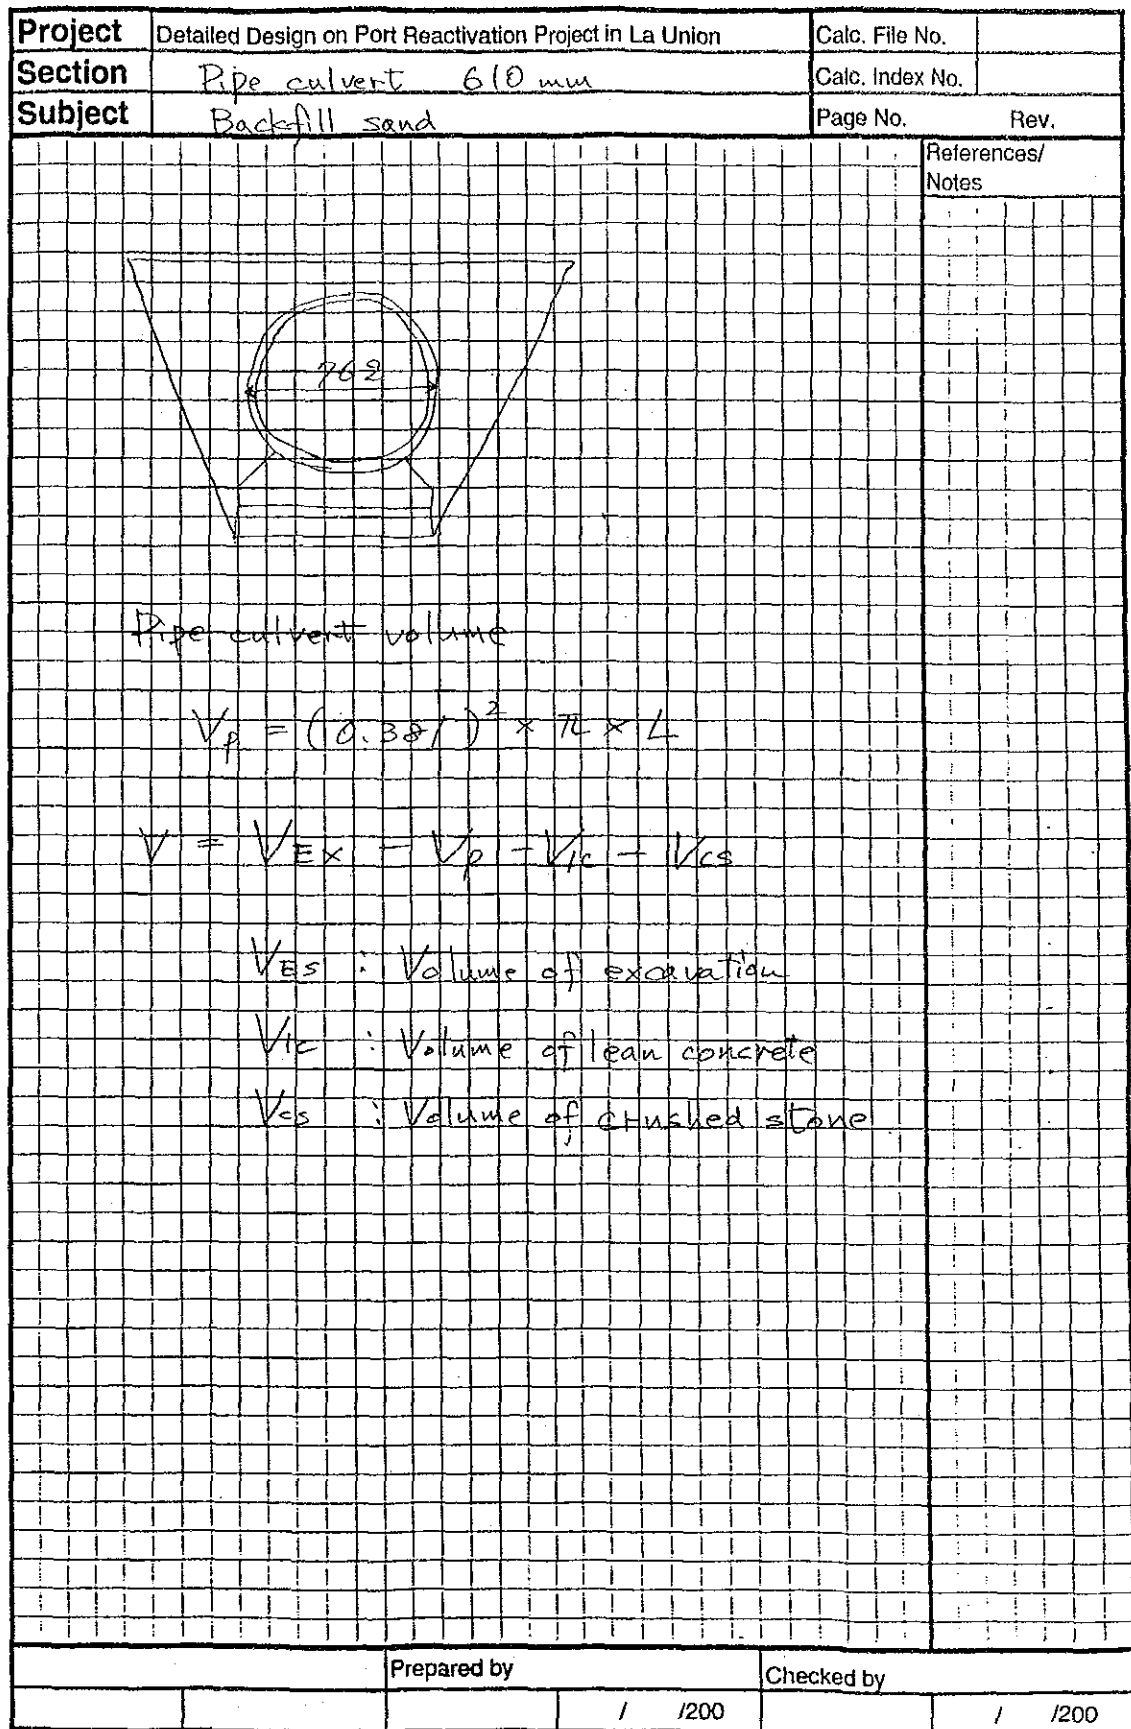 Project Detailed Design on Port Reactivation Project in La Union Calc. File No.
Section Pipe culvert 610 mm Calc. Index No.
Subject Backfill sand Page No. Rev.
References/
Notes
762
Pipe culvert volume
Vp = (0.381)² × π × L
V = VEx - Vp - Vlc - Vcs
VEs : Volume of excavation
Vlc : Volume of lean concrete
Vcs : Volume of crushed stone
Prepared by Checked by
/ /200 / /200